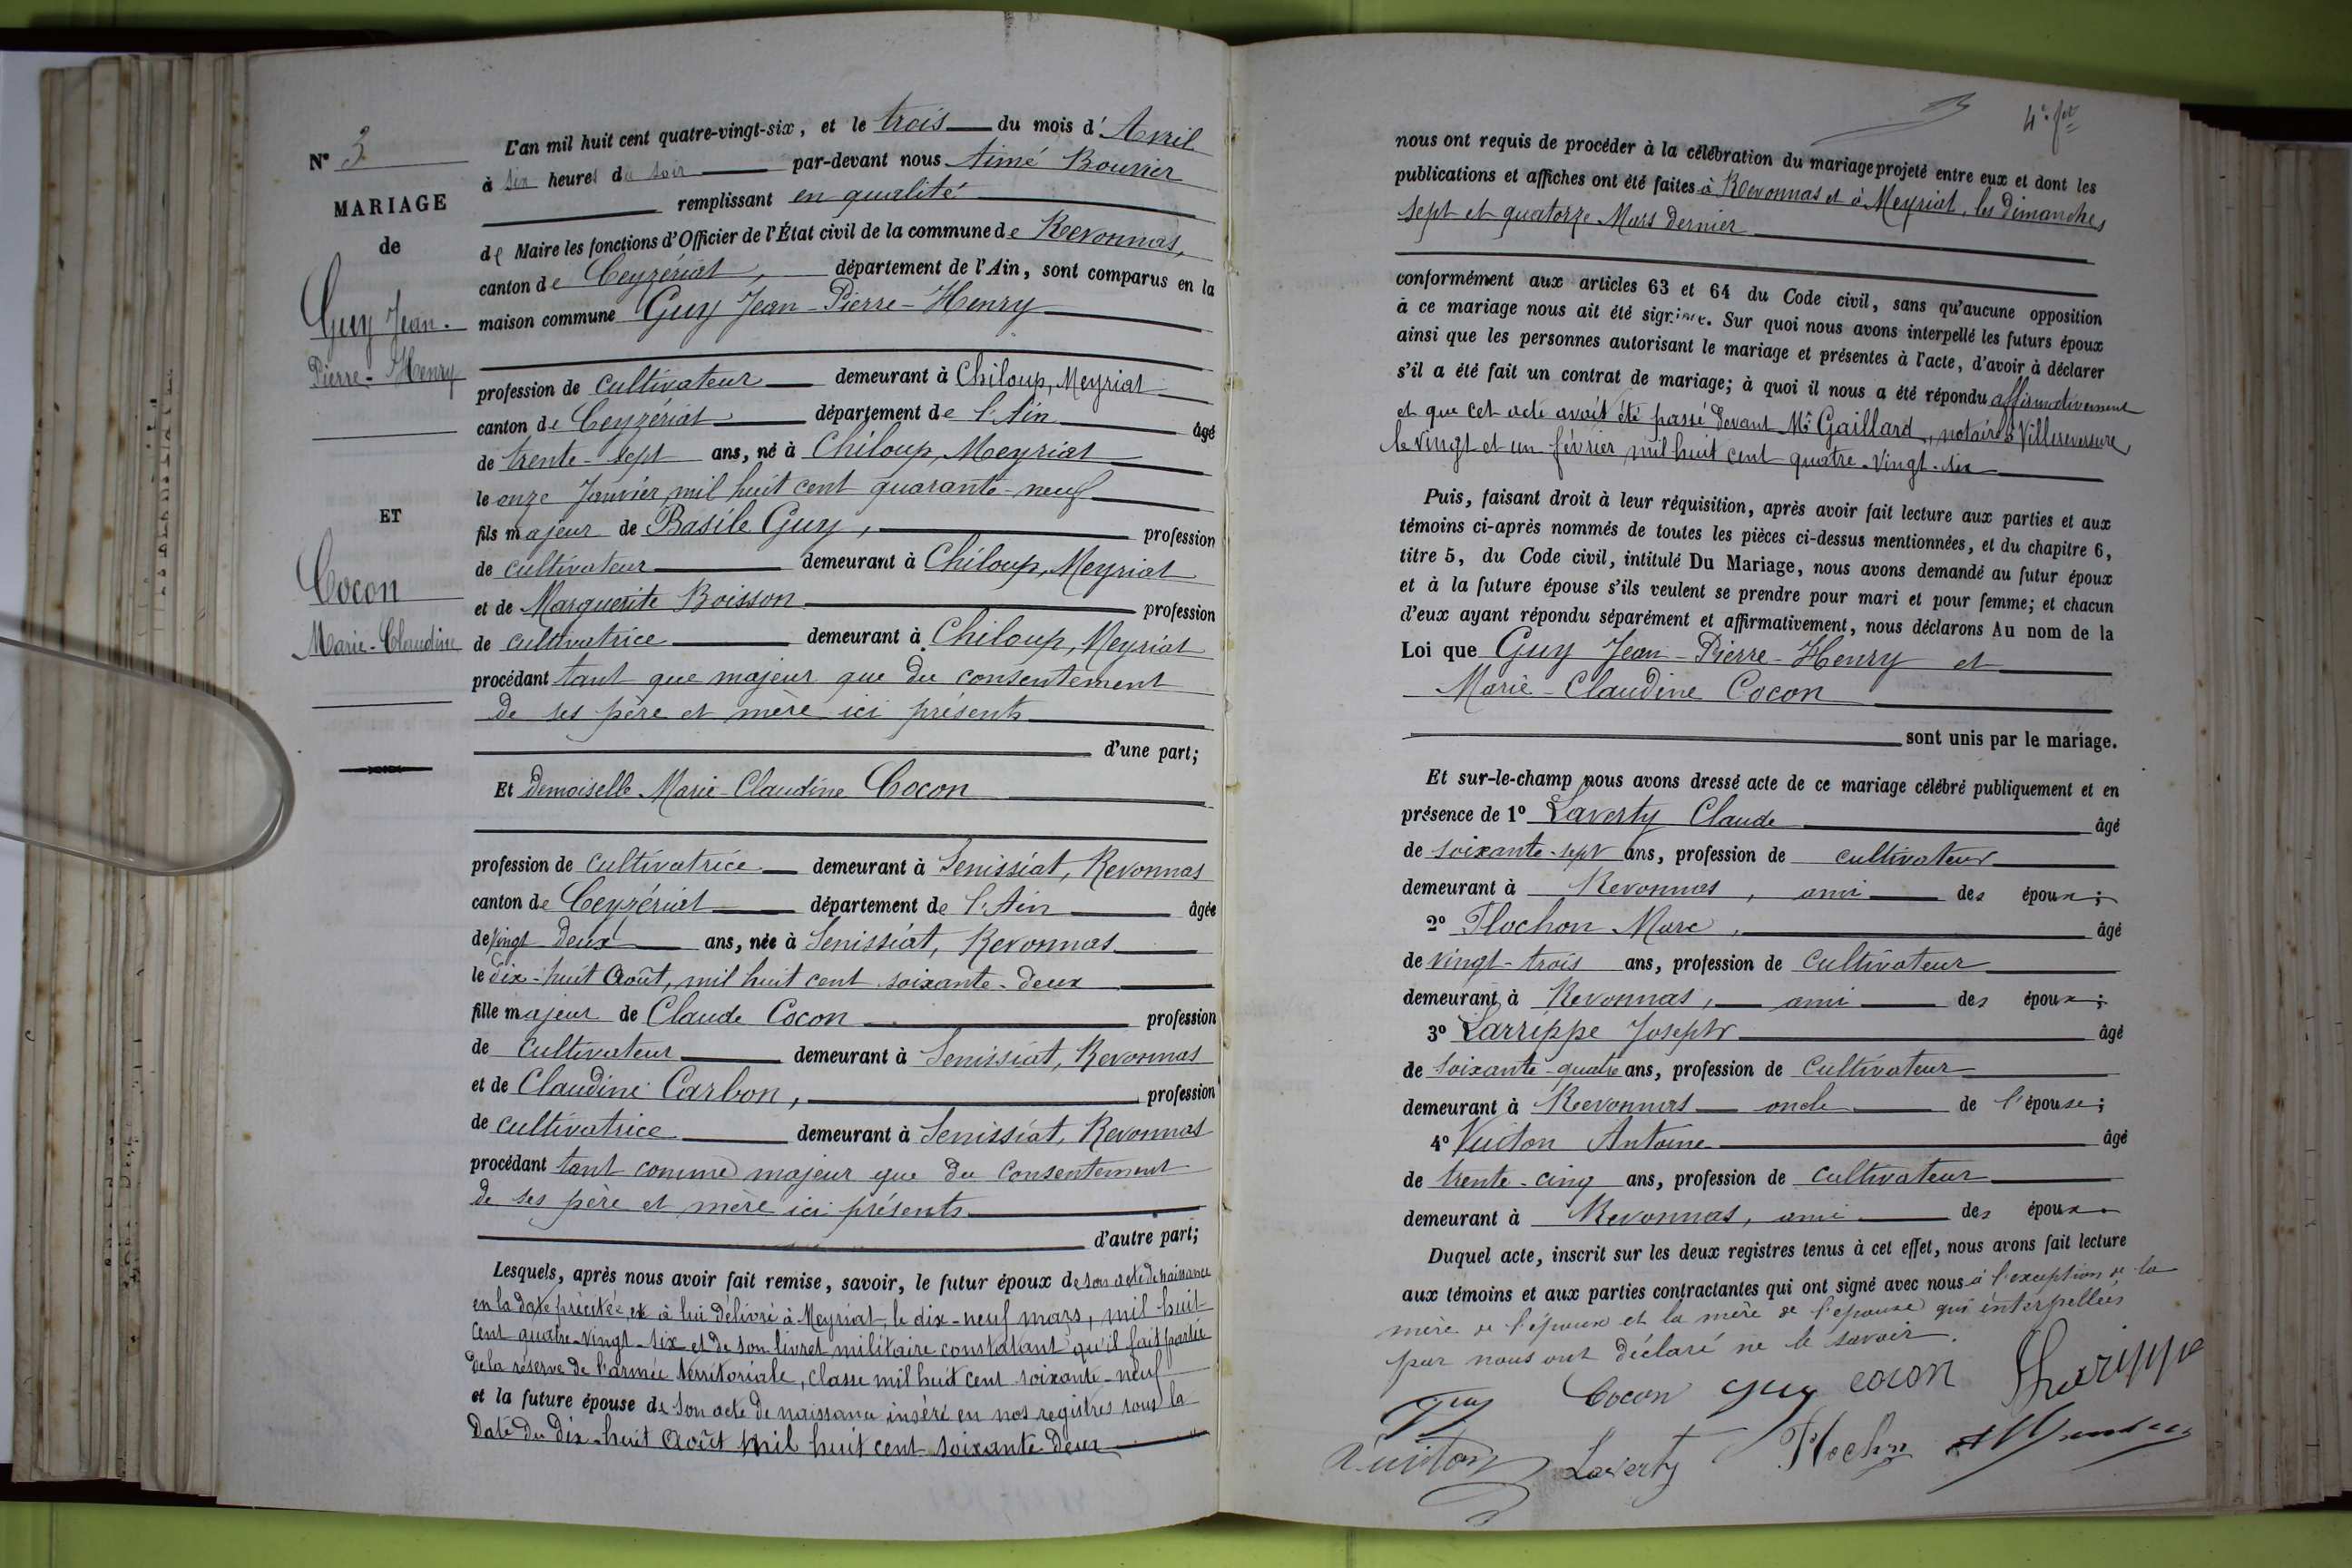 N° 3
MARIAGE
de
Guy Jean-
Pierre-Henry
ET
Cocon
Marie-Claudine
L'an mil huit cent quatre-vingt-six, et le trois du mois d'Avril
à six heures du soir par-devant nous Aimé Bouvier
remplissant en qualité
de Maire les fonctions d'Officier de l'État civil de la commune de Revonnas,
canton de Ceyzériat, département de l'Ain, sont comparus en la
maison commune Guy Jean-Pierre-Henry
profession de cultivateur demeurant à Chiloup, Meyriat
canton de Ceyzériat département de l'Ain âgé
de trente-sept ans, né à Chiloup, Meyriat
le onze Janvier mil huit cent quarante-neuf
fils majeur de Basile Guy, profession
de cultivateur demeurant à Chiloup, Meyriat
et de Marguerite Boisson profession
de cultivatrice demeurant à Chiloup, Meyriat
procédant tant que majeur que du consentement
de ses père et mère ici présents
d'une part;
Et Demoiselle Marie-Claudine Cocon
profession de cultivatrice demeurant à Senissiat, Revonnas
canton de Ceyzériat département de l'Ain âgée
de vingt deux ans, née à Senissiat, Revonnas
le dix-huit Août, mil huit cent soixante-deux
fille majeur de Claude Cocon profession
de cultivateur demeurant à Senissiat, Revonnas
et de Claudine Carbon, profession
de cultivatrice demeurant à Senissiat, Revonnas
procédant tant comme majeur que du consentement
de ses père et mère ici présents
d'autre part;
Lesquels, après nous avoir fait remise, savoir, le futur époux de son acte de naissance
en la date précitée, et à lui délivré à Meyriat, le dix-neuf mars, mil huit
cent quatre-vingt-six et de son livret militaire constatant qu'il fait partie
de la réserve de l'armée territoriale, classe mil huit cent soixante-neuf
et la future épouse de son acte de naissance inséré en nos registres sous la
date du dix-huit Août mil huit cent soixante deux
3
nous ont requis de procéder à la célébration du mariage projeté entre eux et dont les
publications et affiches ont été faites à Revonnas et à Meyriat, les dimanches
sept et quatorze Mars dernier
conformément aux articles 63 et 64 du Code civil, sans qu'aucune opposition
à ce mariage nous ait été signifiée. Sur quoi nous avons interpellé les futurs époux
ainsi que les personnes autorisant le mariage et présentes à l'acte, d'avoir à déclarer
s'il a été fait un contrat de mariage; à quoi il nous a été répondu affirmativement
et que cet acte avait été passé devant Me Gaillard, notaire à Villereversure,
le vingt et un février mil huit cent quatre-vingt-six
Puis, faisant droit à leur réquisition, après avoir fait lecture aux parties et aux
témoins ci-après nommés de toutes les pièces ci-dessus mentionnées, et du chapitre 6,
titre 5, du Code civil, intitulé Du Mariage, nous avons demandé au futur époux
et à la future épouse s'ils veulent se prendre pour mari et pour femme; et chacun
d'eux ayant répondu séparément et affirmativement, nous déclarons Au nom de la
Loi que Guy Jean-Pierre-Henry et
Marie-Claudine Cocon
sont unis par le mariage.
Et sur-le-champ nous avons dressé acte de ce mariage célébré publiquement et en
présence de 1° Laverty Claude âgé
de soixante-sept ans, profession de cultivateur
demeurant à Revonnas, ami des époux;
2° Flochon Marc, âgé
de vingt-trois ans, profession de cultivateur
demeurant à Revonnas, ami des époux;
3° Larrippe Joseph âgé
de soixante-quatre ans, profession de cultivateur
demeurant à Revonnas oncle de l'épouse;
4° Vuiton Antoine âgé
de trente-cinq ans, profession de cultivateur
demeurant à Revonnas, ami des époux.
Duquel acte, inscrit sur les deux registres tenus à cet effet, nous avons fait lecture
aux témoins et aux parties contractantes qui ont signé avec nous à l'exception de la
mère de l'époux et la mère de l'épouse qui interpellées
par nous ont déclaré ne le savoir.
Guy Cocon guy cocon Lharippe
Vuiton Laverty Flochon